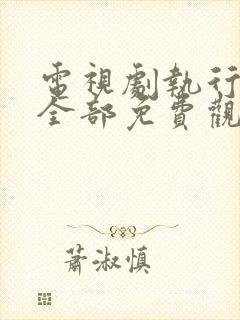 電視劇執行
全部免費觀
蕭淑慎